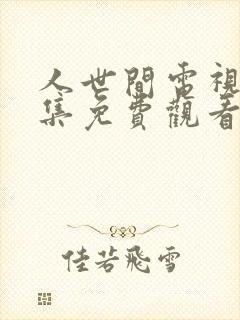 人世間電視
集免費觀看
佳若飛雪